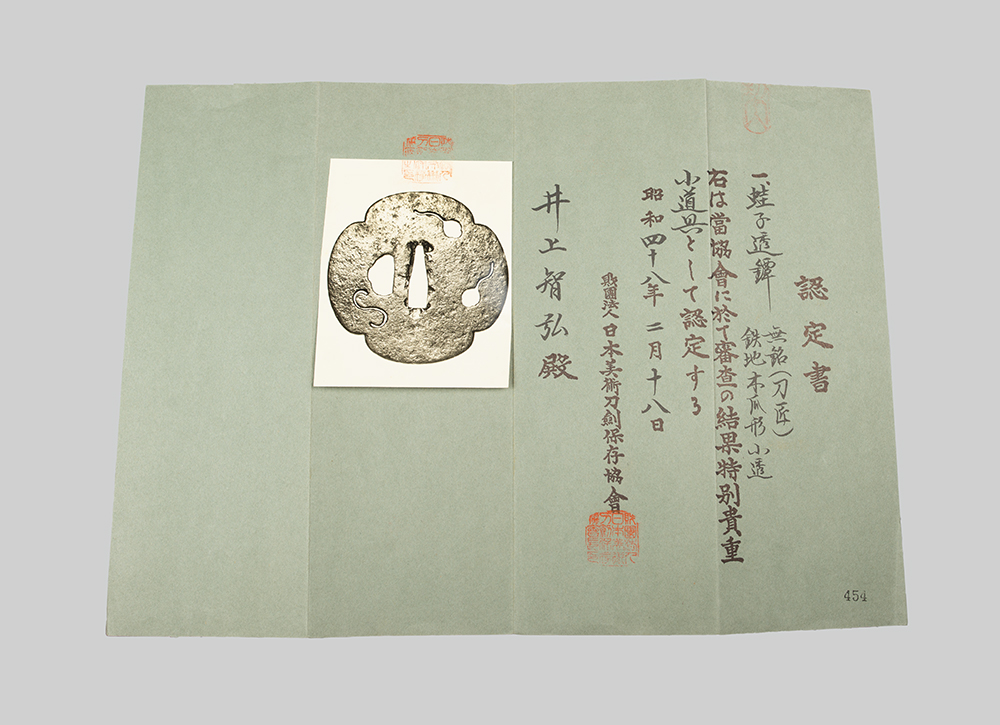 認定書
一、蛙子透鐔 無銘(刀匠)
鉄地木瓜形小透
右は當協會に於て審査の結果特別貴重
小道具として認定する
昭和四十八年二月十八日
財團法人日本美術刀剣保存協會
井上智弘殿
454